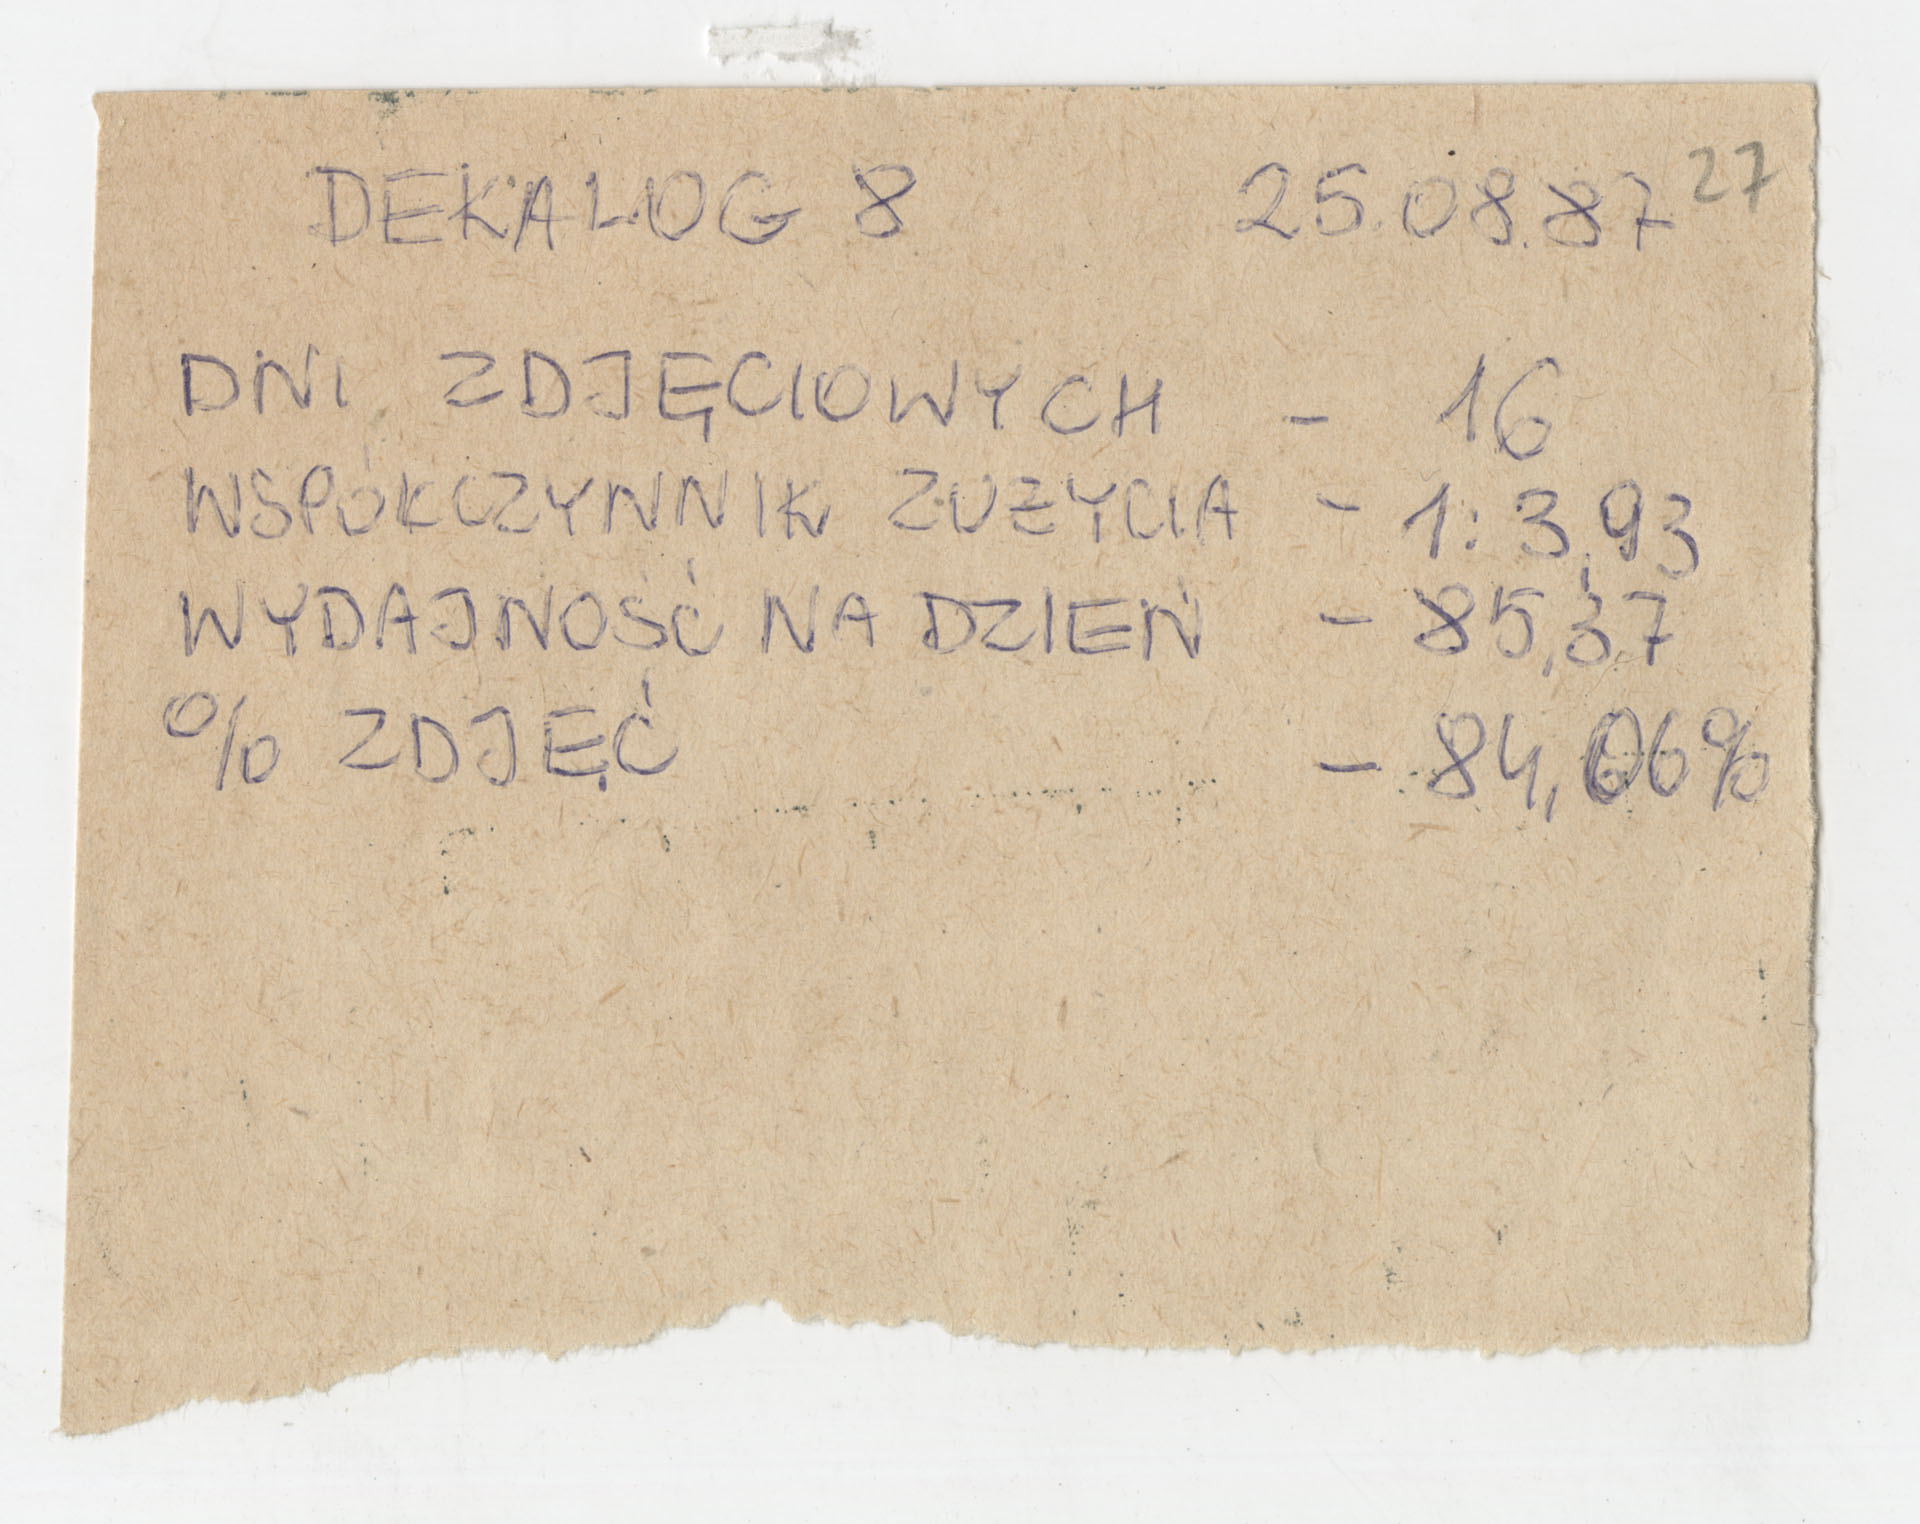 DEKALOG 8 25.08.87 27
DNI ZDJĘCIOWYCH - 16
WSPÓŁCZYNNIK ZUŻYCIA - 1:3,93
WYDAJNOŚĆ NA DZIEŃ - 85,37
% ZDJĘĆ - 84,06%